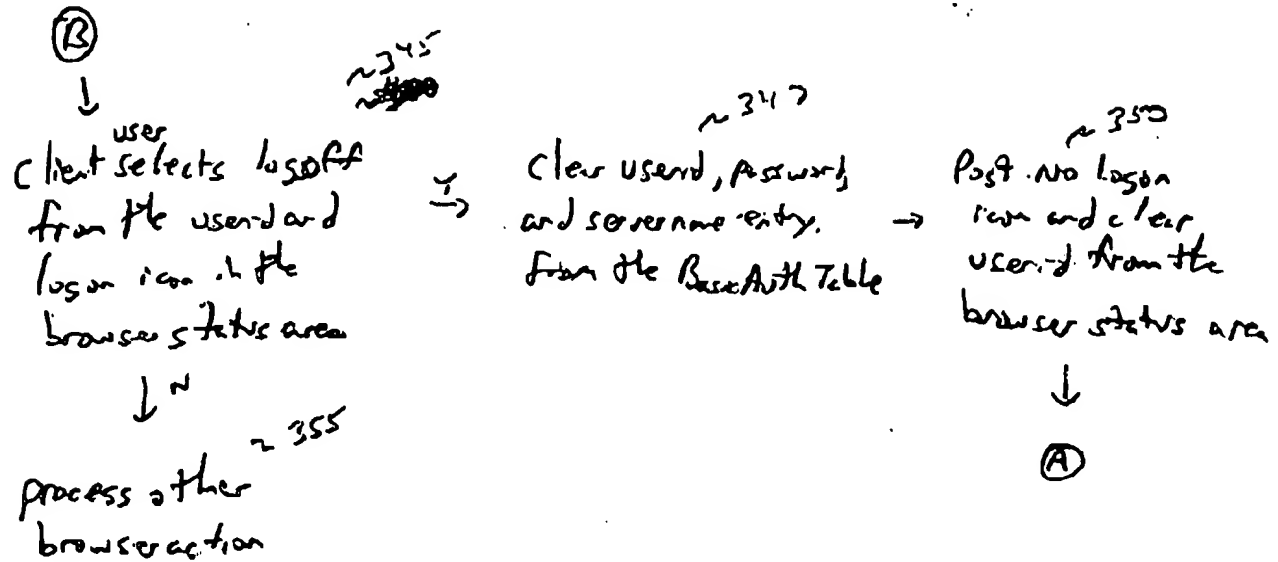 B
~345
client user selects logoff
from the userid and
logon icon in the
browser status area
Y
~347
Clear userid, password,
and servername entry.
from the BasicAuth Table
~350
Post No logon
icon and clear
userid from the
browser status area
A
N
~355
process other
browser action